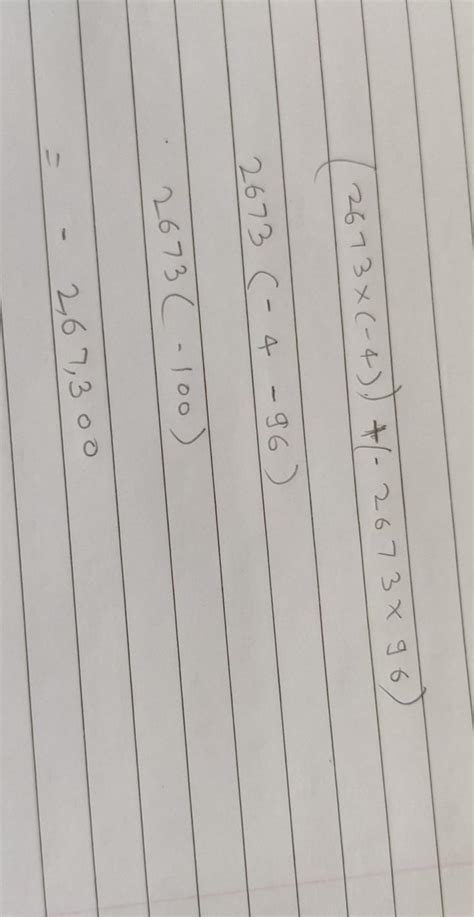 (2673×(-4)) +(-2673×96)
2673 (-4 -96)
2673 (-100)
= - 2,67,300